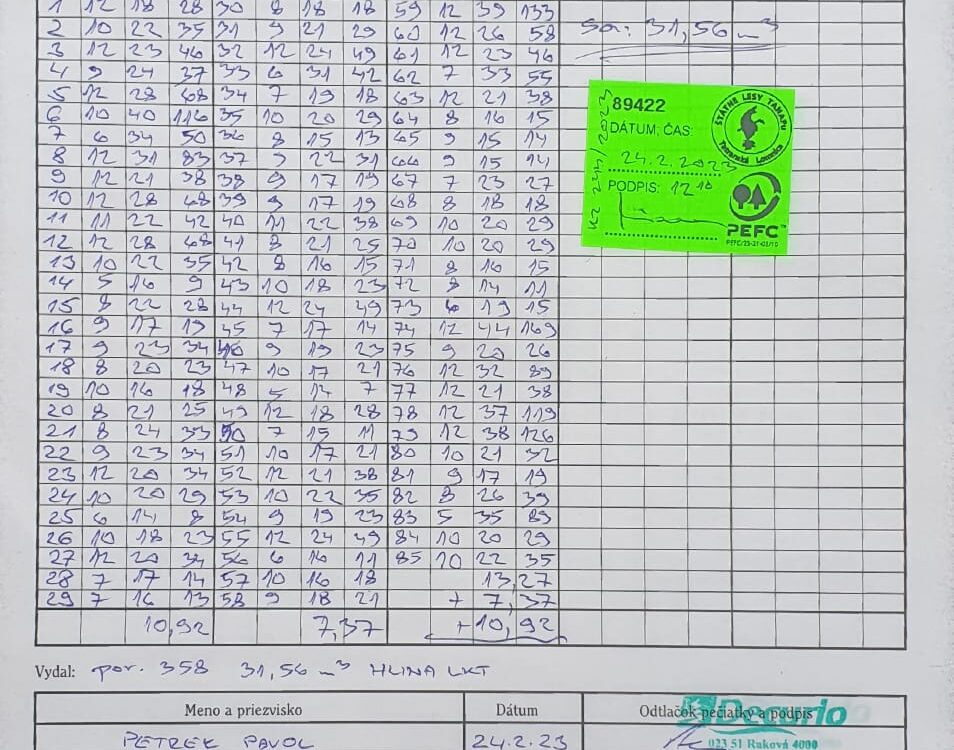 1 12 18 28 30 8 18 18 59 12 39 133
2 10 22 35 31 9 21 29 60 12 26 58
3 12 23 46 32 12 24 49 61 12 23 46
4 9 24 37 33 6 31 42 62 7 33 55
5 12 28 68 34 7 19 18 63 12 21 38
6 10 40 116 35 10 20 29 64 8 16 15
7 6 34 50 36 8 15 13 65 9 15 14
8 12 31 83 37 9 22 31 66 9 15 14
9 12 21 38 38 9 17 19 67 7 23 27
10 12 28 68 39 9 17 19 68 8 18 18
11 11 22 42 40 11 22 38 69 10 20 29
12 12 28 68 41 8 21 25 70 10 20 29
13 10 22 35 42 8 16 15 71 8 16 15
14 5 16 9 43 10 18 23 72 8 14 11
15 8 22 28 44 12 24 49 73 6 19 15
16 9 17 19 45 7 17 14 74 12 44 169
17 9 23 34 46 9 19 23 75 9 20 26
18 8 20 23 47 10 17 21 76 12 32 89
19 10 16 18 48 5 14 7 77 12 21 38
20 8 21 25 49 12 18 28 78 12 37 119
21 8 24 33 50 7 15 11 79 12 38 126
22 9 23 34 51 10 17 21 80 10 21 32
23 12 20 34 52 12 21 38 81 9 17 19
24 10 20 29 53 10 22 35 82 8 26 39
25 6 14 8 54 9 19 23 83 5 35 89
26 10 18 23 55 12 24 49 84 10 20 29
27 12 20 34 56 6 16 11 85 10 22 35
28 7 17 14 57 10 16 18 13,27
29 7 16 13 58 9 18 21 + 7,37
10,92 7,37 +10,92
Sa: 31,56 m³
89422
ŠTÁTNE LESY TANAPU
Tatranská Lomnica
DÁTUM, ČAS
24.2.2023
PODPIS: 12 10
PEFC™
Vydal: por. 358 31,56 m³ HLINA LKT
Meno a priezvisko Dátum Odtlačok pečiatky a podpis
Decorio
PETREK PAVOL 24.2.23
023 51 Raková 4000